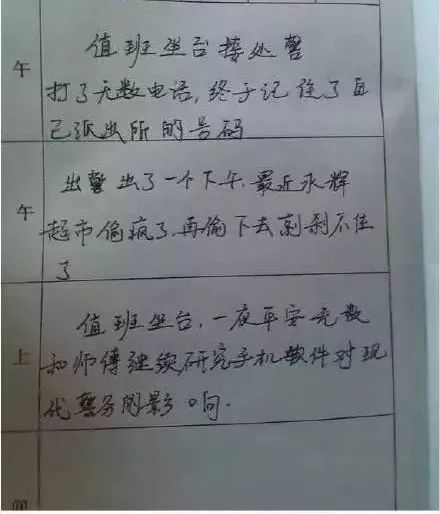 午
值班坐台接处警
打了无数电话,终于记住了自
己派出所的号码
午
出警出了一个下午.最近永辉
超市偷疯了.再偷下去刹刹不住
了
上
值班坐台,一夜平安无数
和师傅继续研究手机软件对现
代警务的影响.